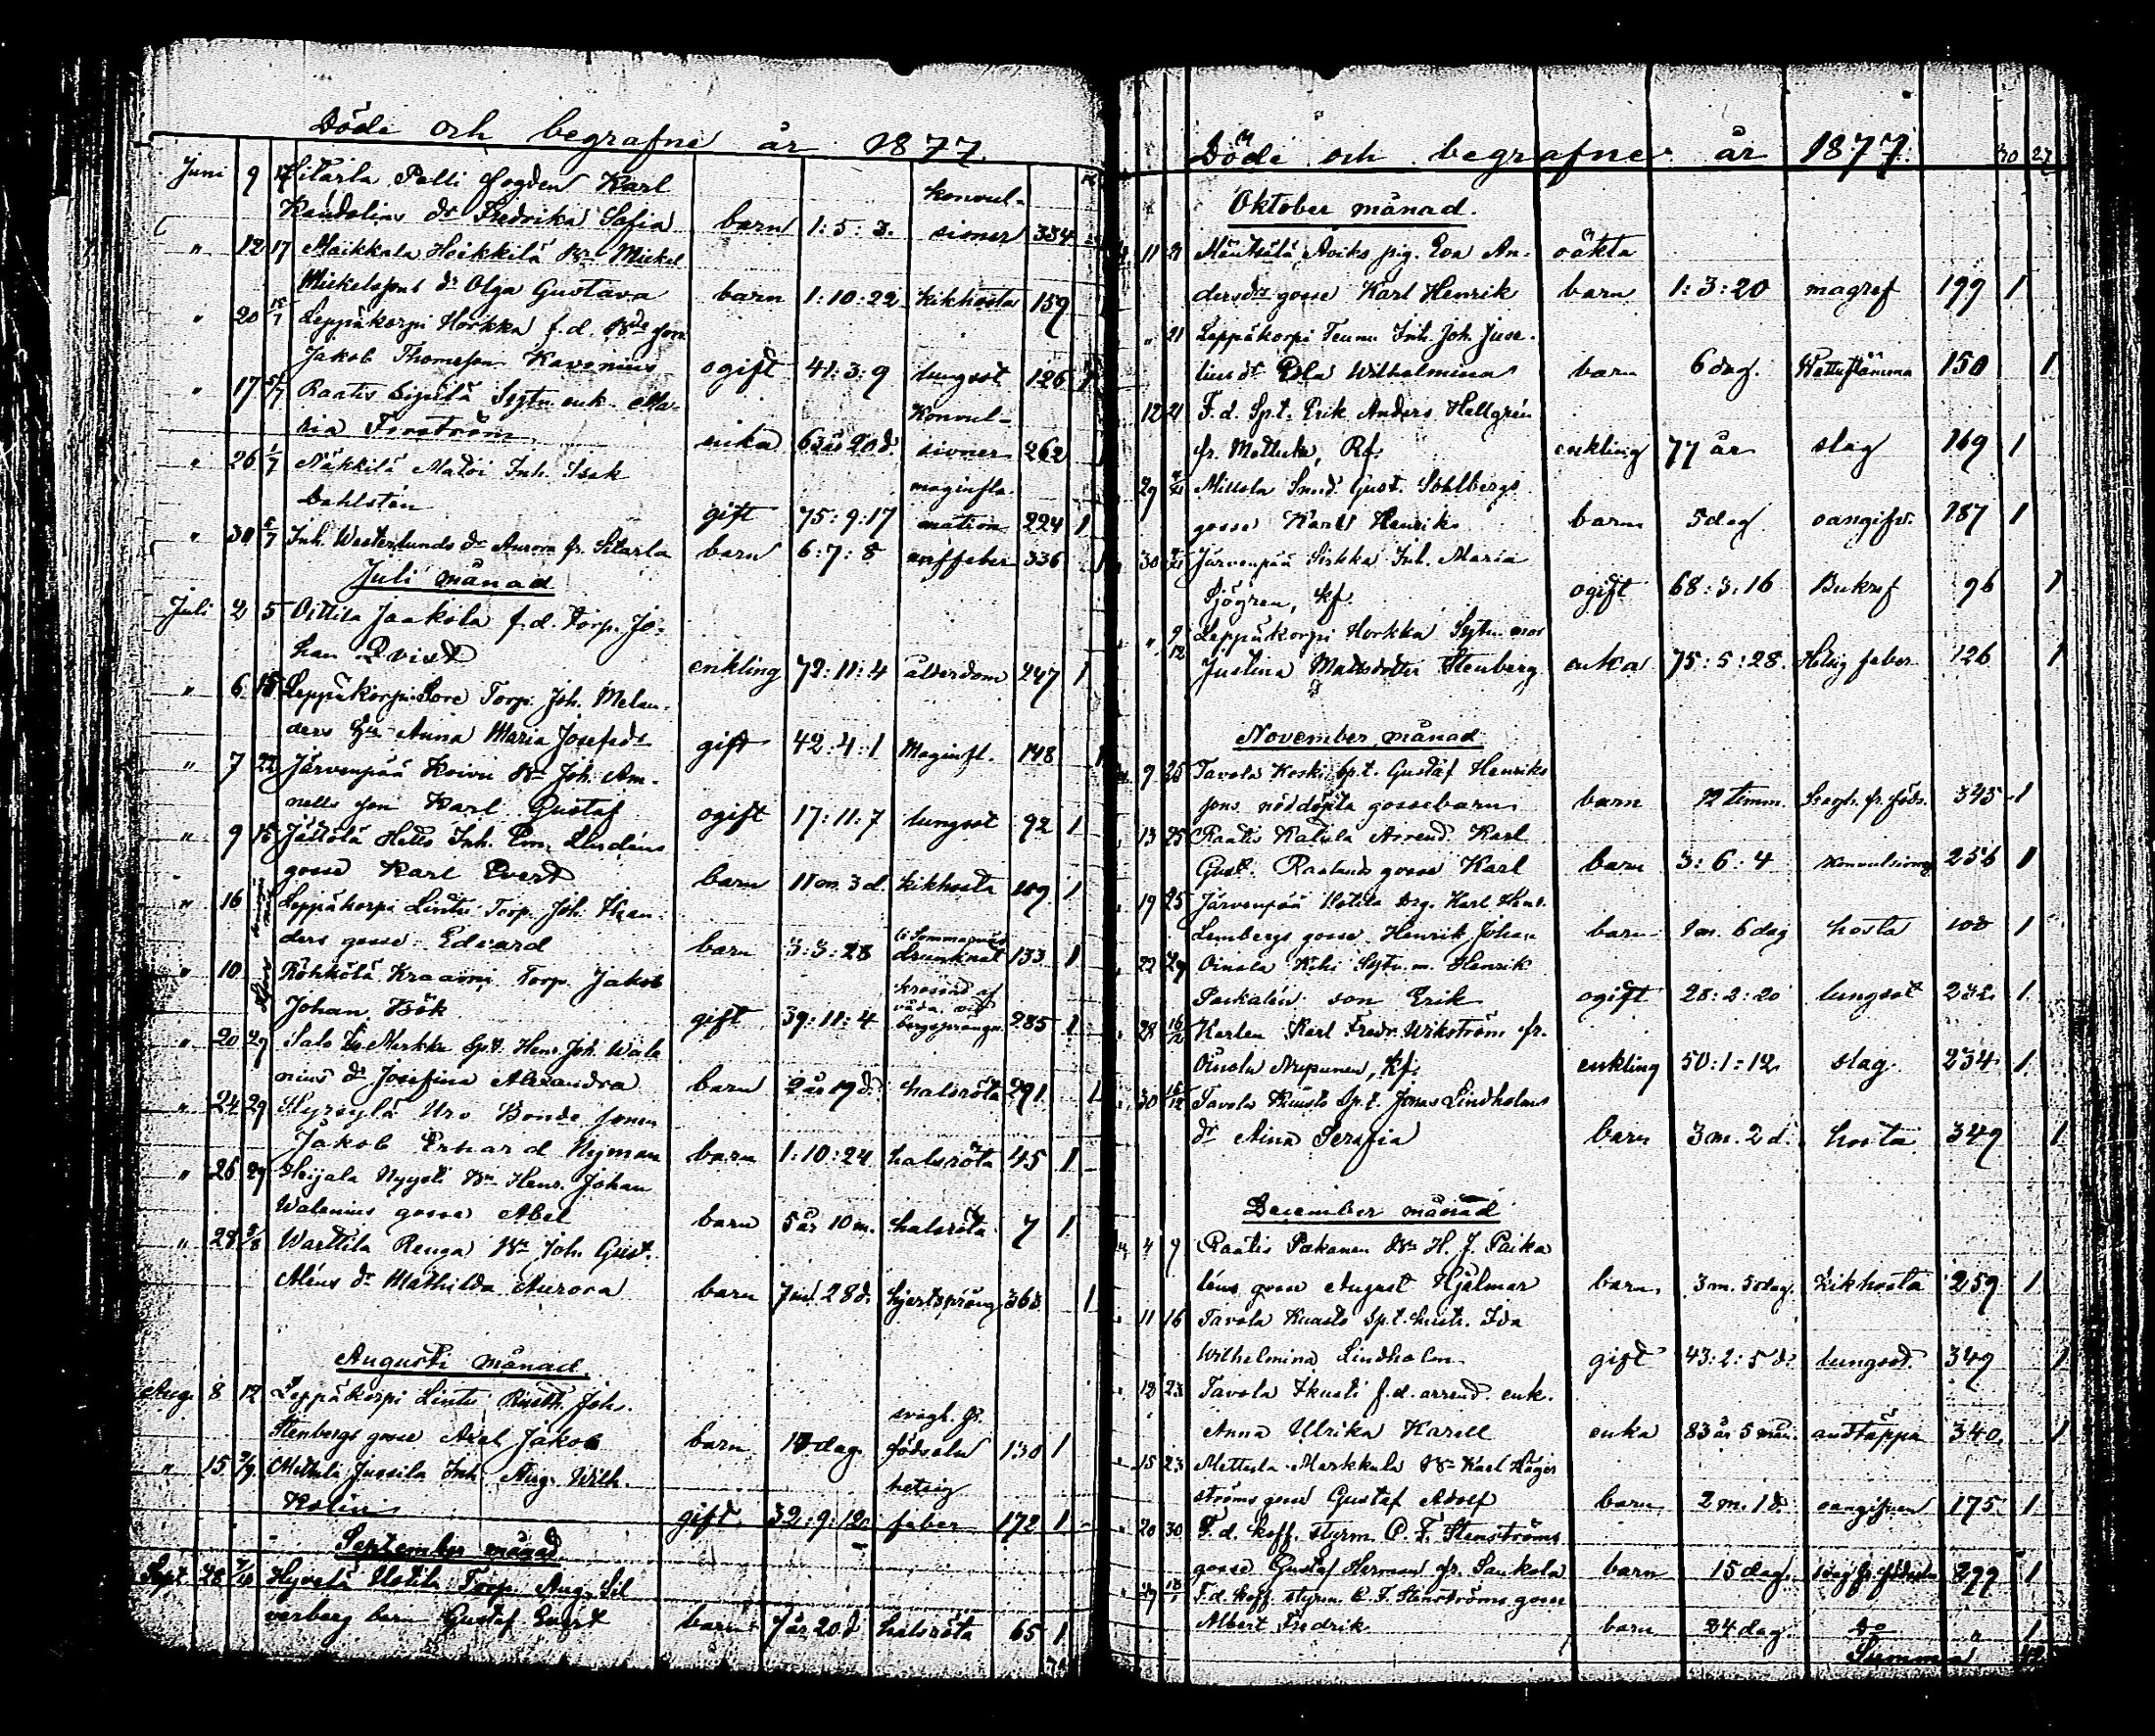 Döde och begrafne år 1877
Juni 9 Sitarla Pelli fogden Karl
Randelins dr Fredrika Sofia barn 1:5:3. konvulsioner 334
" 12 17 Maikkala Heikkilä Bn Mickel
Mickelssons dr Olga Gustava barn 1:10:22 kikhosta 159
" 20 15/7 Leppäkorpi Horkka f.d. Bde son
Jakob Thomsson Kavenius ogift 41:3:9 lungsot 126 1
" 17 Raatis Sipilä Sytn. enk. Ma-
ria Forström enka 63 år 20 d. konvulsioner 262 1
" 26 1/7 Näkkilä Inh. Isak
Dahlstén gift 75:9:17 maginflammation 224 1
" 30 8/7 Inh. Westerlunds dr Aurora fr. Sitarla barn 6:7:8 336 1
Juli månad
Juli 2 5 Oittila Jaakola f.d. Torp. Jo-
han Qvist enkling 72:11:4 ålderdom 247 1
" 6 15 Leppäkorpi Torp. Joh. Melan-
ders Hu Anna Maria Josefsdr gift 42:4:1 Maginfl. 148 1
" 7 22 Järvenpää Koivu Bn Joh. Am-
nells son Karl Gustaf ogift 17:11:7 lungsot 92 1
" 9 15 Jättölä Inh. Em. Lindéns
gosse Karl Evert barn 11 m. 3 d. kikhosta 109 1
" 16 Leppäkorpi Lintu Torp. Joh.
ders gosse Edvard barn 3:3:28 drunknat 133 1
" 10 Röhkölä Kraavi Torp. Jakob
Johan Bök gift 39:11:4 krossad af våda vid bergsprängn. 285 1
" 20 29 Salo Markku Sp.t. Henr. Joh. Wale
nius dr Josefina Alexandra barn 2 år 19 d. halsröta 291 1
" 24 29 Hyrsylä Uro Bonde sonen
Jakob Ernard Nyman barn 1:10:24 halsröta 45 1
" 26 29 Heijala Nygoli Bn Henr. Johan
Walenius gosse Abel barn 5 år 10 m. halsröta 7 1
" 28 5/8 Warttila Renga Bn Joh. Gust.
Aléns dr Mathilda Aurora barn 7 m. 28 d. hjertsprång 363 1
Augusti månad
Aug. 8 12 Leppäkorpi Lintu Joh.
Stenbergs gosse Axel Jakob barn dag. svagh. fr. födseln 130 1
" 15 Jussila Inh. Aug. Wilh.
Kolin gift 32:9:12 hetsig feber 172 1
September månad
Sept. 28 7/10 Hyvelä Uotila Torp. Aug. Sil
verberg barn Gustaf Evert barn 7 år 20 d halsröta 65 1
Döde och begrafne år 1877. 30 27
Oktober månad.
11 21 Mäntsälä Aviks pig. Eva An- oäkta
dersdrs gosse Karl Henrik barn 1:3:20 magref 199 1
" 21 Leppäkorpi Teunu Inh. Joh. Juse-
lius dr Eda Wilhelmina barn 6 dag. 150 1
12 21 F.d. Sp.t. Erik Anders Hellgrén
fr. Mattila, Rf. enkling 77 år slag 169 1
29 Millola Smed. Gust. Sohlbergs
gosse Karl Henrik barn 5 dag oangifv. 187 1
30 Järvenpää Sirkka Inh. Maria
Sjögren, kf. ogift 68:3:16 Bukref 96 1
" 9/12 Leppäkorpi Horkka Sytn. mor
Justina Mattsdotter Stenberg enka 75:5:28 Hetsig feber 126 1
November månad
9 25 Tavola Koski Sp.t. Gustaf Henriks
sons nöddöpta gossebarn barn 12 timm. Svagh. fr. föds. 345 1
13 25 Raatis Katila Arrend. Karl
Gust. Raalunds gosse Karl barn 3:6:4 Konvulsioner 256 1
19 25 Järvenpää Uotila drg. Karl
Lembergs gosse Henrik Johan barn 1 m. 6 dag hosta 100 1
22 29 Oinala Kihi Sytn. m. Henrik
Packalén son Erik ogift 28:2:20 lungsot 232 1
28 16/12 Karlen Karl Fredr. Wikström fr.
Oinala Nupunen, Kf. enkling 50:1:12 slag 234 1
30 16/12 Tavola Knuuts Sp.t. Jonas Lindholms
dr Aina Serafia barn 3 m. 2 d. hosta 349 1
December månad
4 9 Raatis Pakanen Bn H. J. Paika
léns gosse August Hjelmar barn 3 m. 5 dag. kikhosta 259 1
11 16 Tavola Knuuts Sp.t. hustr. Ida
Wilhelmina Lindholm gift 43:2:5 d. lungsot 349 1
13 23 Tavola Skusti f.d. arrend. enk.
Anna Ulrika Karell enka 83 år 5 mån. andtäppa 340 1
15 23 Mettula Markkula Bn Karl Höger
ströms gosse Gustaf Adolf barn 2 m. 1 d. oangifven 175 1
" 20 30 F.d. koff. styrm. C. F. Stenströms
gosse Gustaf Herman fr. Saukola barn 15 dag. svagh. fr. födseln 299 1
F.d. koff. styrm. C. F. Stenströms gosse
Albert Fredrik barn 24 dag. do " 1
Summa